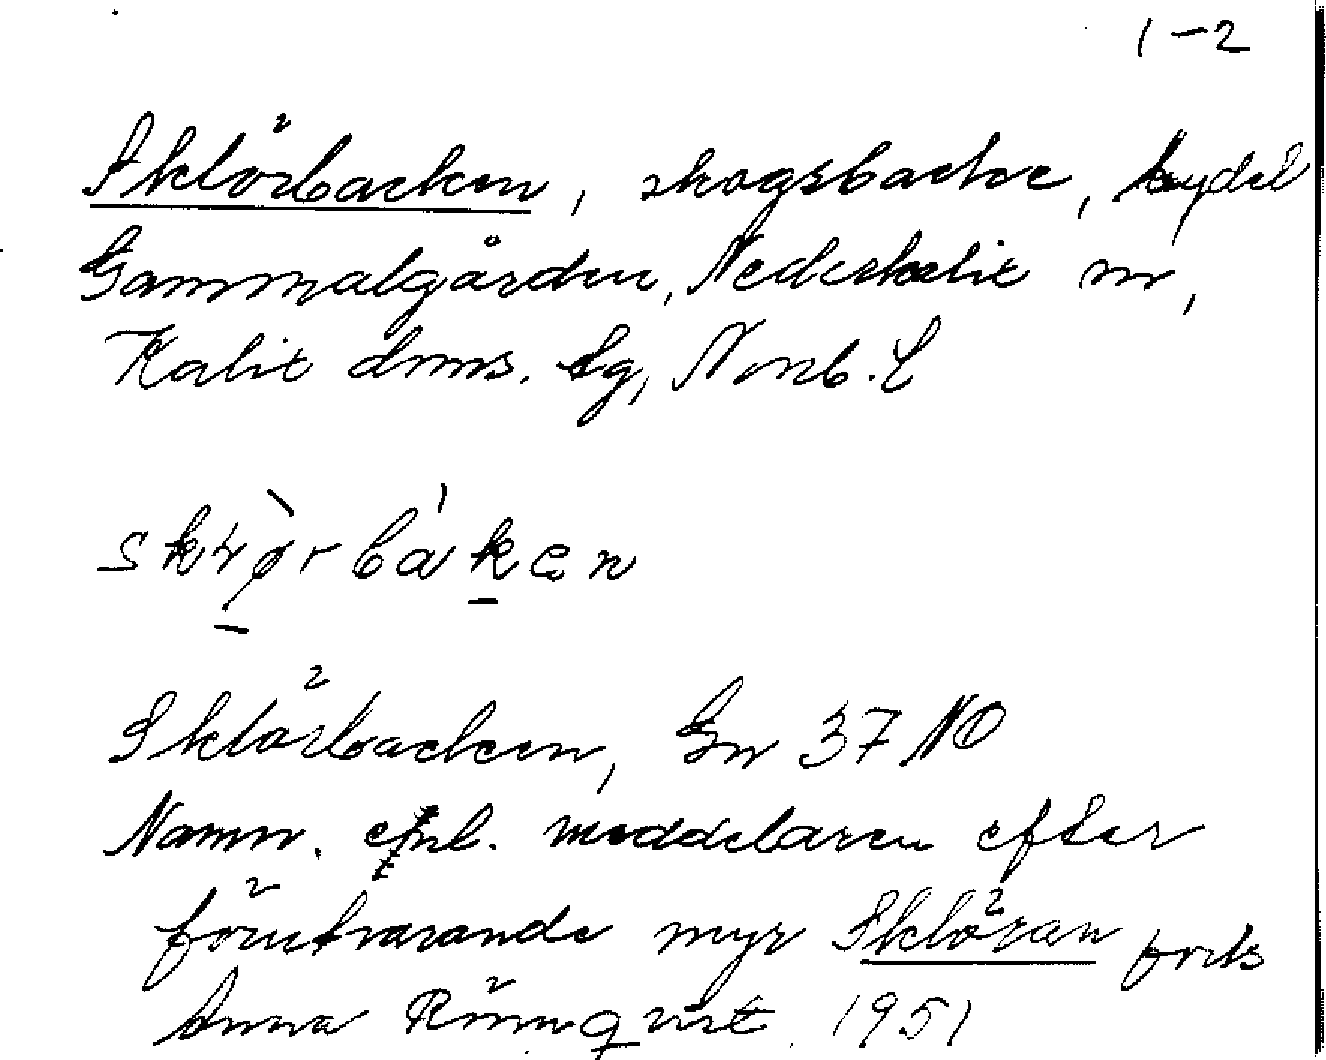 1-2
Sklörbacken, skogsbacke, bydel
Gammalgården, Nederkalix sn,
Kalix dnms. tg, Norrb. l
Sklörbacken, Gn 37 NO
Namn. enl. meddelaren efter
förutvarande myr Sklöran forts
Anna Rönnqvist 1951